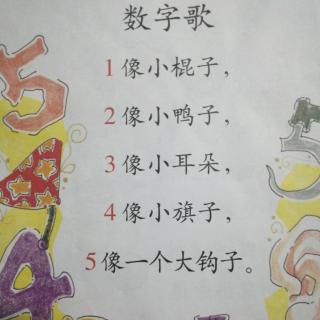 数字歌
1像小棍子，
2像小鸭子，
3像小耳朵，
4像小旗子，
5像一个大钩子。